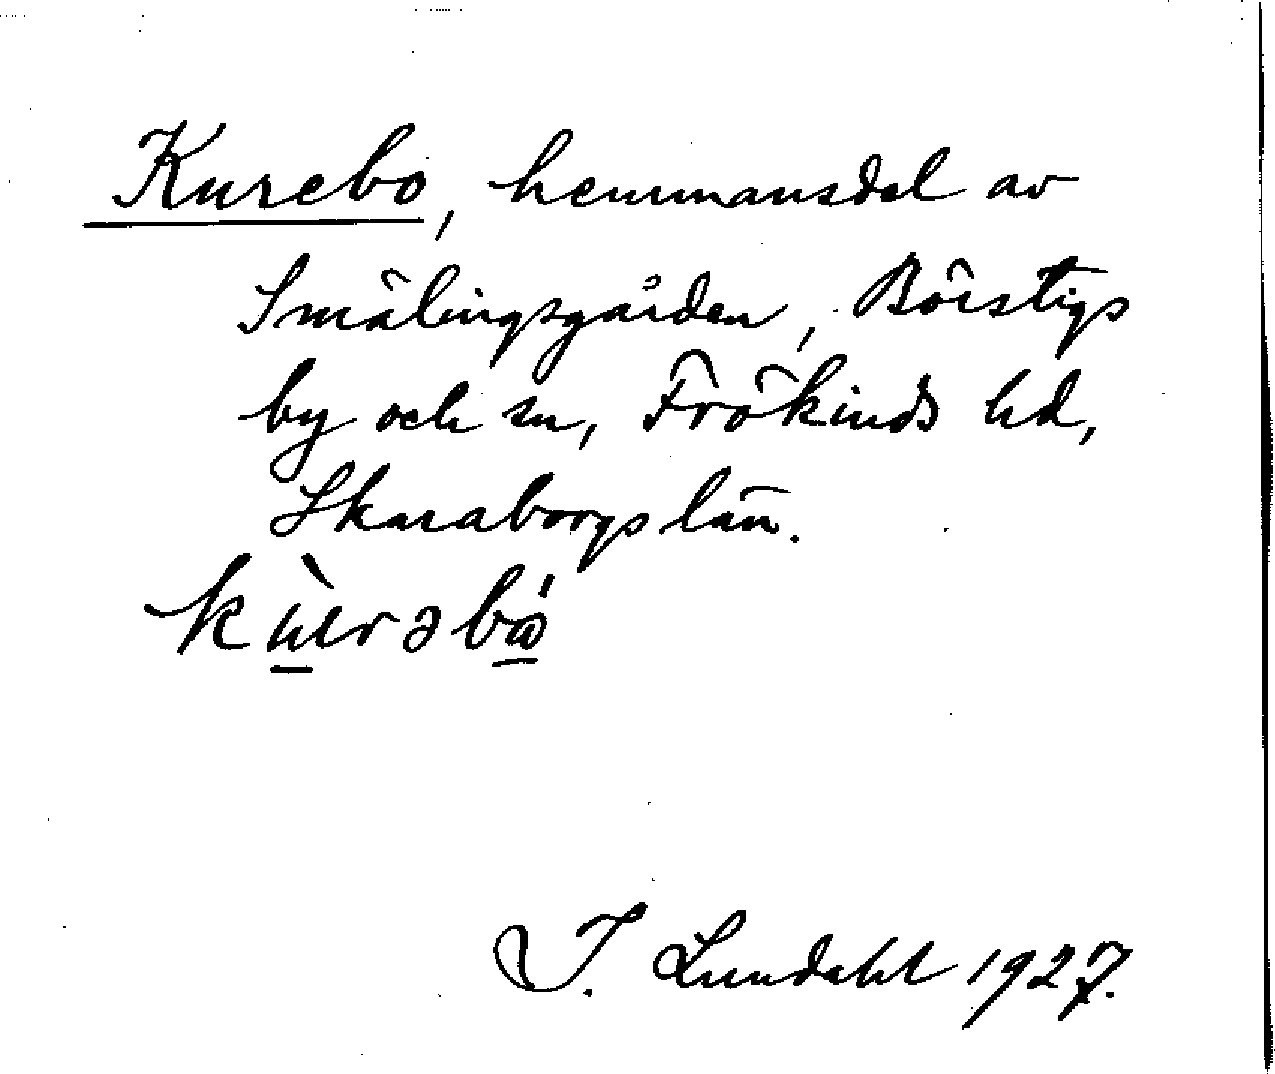 Kurebo, hemmansdel av
Smålingsgården, Börstigs
by och sn, Frökinds hd,
Skaraborgs län.
kùrəbó
I. Lundahl 1927.